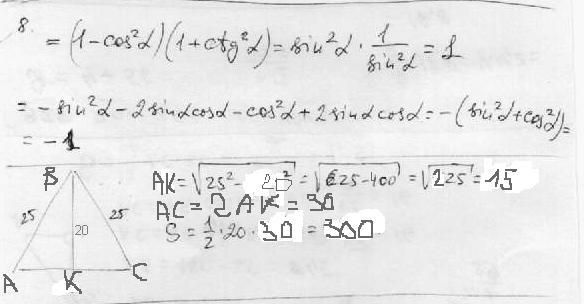 8.
= (1-cos²α)(1+ctg²α) = sin²α · 1/sin²α = 1
= - sin²α - 2sinαcosα - cos²α + 2 sinα cosα = -(sin²α + cos²α) =
= -1
B
AK = √25² - 20² = √625-400 = √225 = 15
25 25
AC = 2AK = 30
20
S = 1/2 · 20 · 30 = 300
A K C